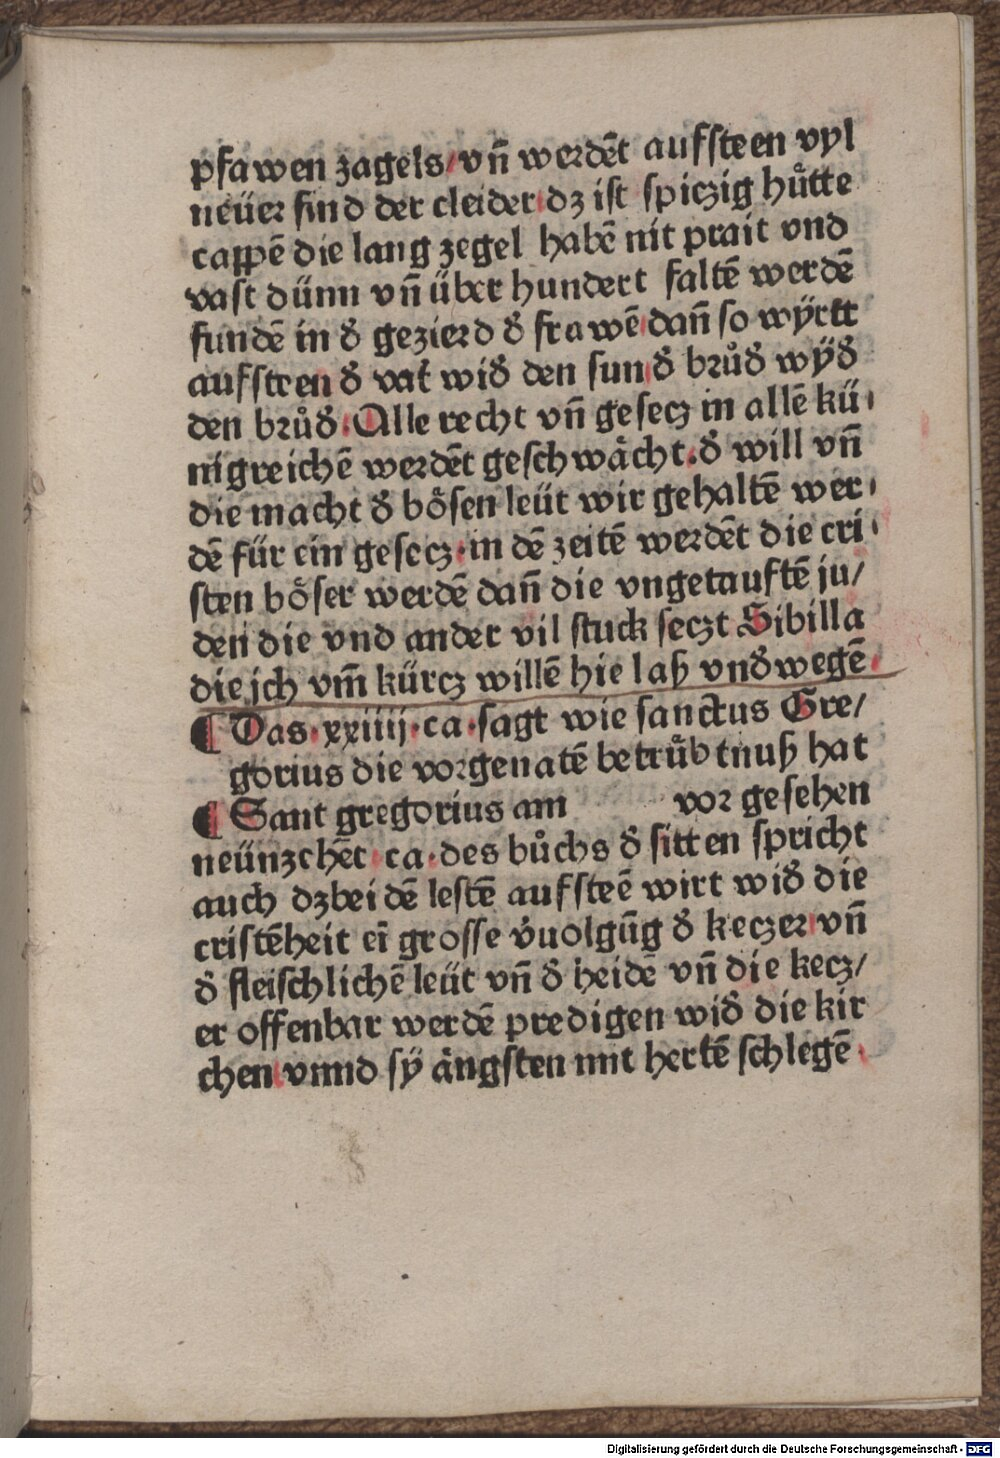 pfawen zagels/vñ werdēt aufsteen vyl
neüer find der cleider dz ist spiczig hůtte
cappē die lang zegel habē nit prait vnd
vast dünn vñ über hundert faltē werdē
fundē in đ gezierd đ frawē dañ so wÿrtt
aufsteen đ vať wiđ den sun đ brůđ wÿđ
den brůđ. Alle recht vñ gesecz in allē kü⸗
nigreichē werdēt geschwåcht. đ will vñ
die macht đ bősen leüt wir gehaltē wer⸗
dē für ein gesecz. in dē zeitē werdēt die cri⸗
sten bőser werdē dañ die vngetauftē ju/
den die vnd ander vil stuck seczt Sibilla
die jch vm̄ kürcz willē hie laß vnđwegē.
¶ Das.xxiiij.ca.sagt wie sanctus Gre/
gorius die vorgenatē betrůbtnuß hat
¶ Sant gregorius am vor gesehen
neünzehēt ca.des bůchs đ sitten spricht
auch dz bei dē lestē aufsteē wirt wiđ die
cristēheit eī grosse v̓uolgūg đ keczer vñ
đ fleischlichē leüt vñ đ heidē vñ die kecz/
er offenbar werdē predigen wiđ die kir
chen vnnd sÿ ångsten mit hertē schlegē.
Digitalisierung gefördert durch die Deutsche Forschungsgemeinschaft - DFG